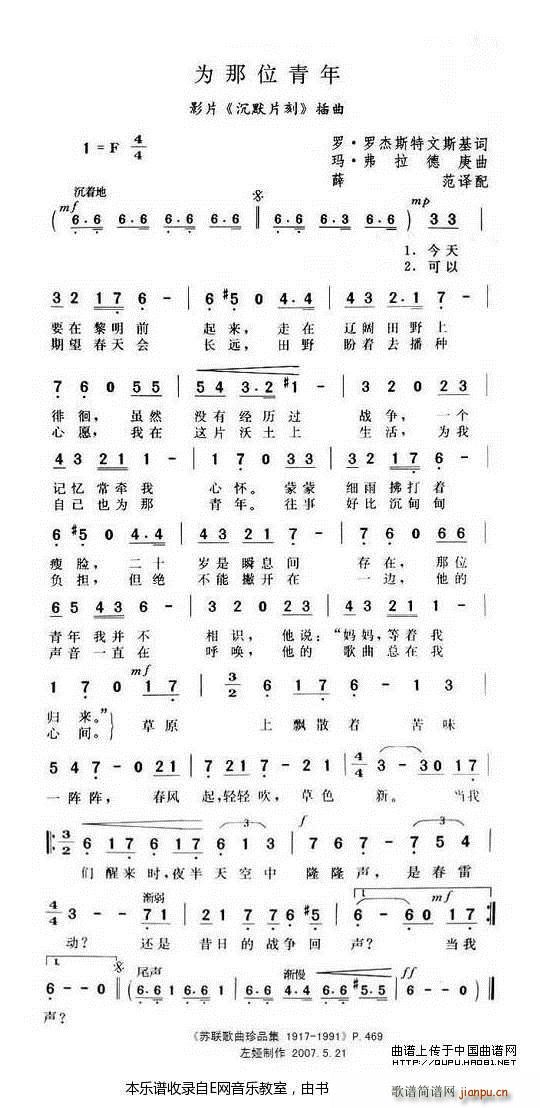 为那位青年
影片《沉默片刻》插曲
1=F 4/4
罗·罗杰斯特文斯基词
玛·弗拉德庚曲
薛范译配
沉着地
mf mp
( 6·6 6·6 6·6 6·6 ‖ 6·6 6·3 6·6 6·6 ) 3 3 |
1. 今天
2. 可以
3 2 1 7 6 - | 6 #5 0 4·4 | 4 3 2·1 7 - |
要在黎明前 起来，走在 辽阔田野上
期望春天会 长远，田野 盼着去播种
7 6 0 5 5 | 5 4 3·2 #1 - | 3 2 0 2 3 |
徘徊，虽然 没有经历过 战争，一个
心愿，我在 这片沃土上 生活，为我
4 3 2 1 1 - | 1 7 0 3 3 | 3 2 1 7 6 - |
记忆常牵我 心怀。蒙蒙 细雨拂打着
自己也为那 青年。往事 好比沉甸甸
6 #5 0 4·4 | 4 3 2 1 7 - | 7 6 0 6 6 |
瘦脸，二十 岁是瞬息间 存在，那位
负担，但绝 不能撇开在 一边，他的
6 5 4 3 6 - | 3 2 0 2 3 | 4 3 2 1 7 - |
青年我并不 相识，他说：“妈妈，等着我
声音一直在 呼唤，他的 歌曲总在我
mf
1 7 0 1 7 | 3/2 6 1 7 1 7 6 - 1 3 |
归来。” 草原 上飘散着 苦味
心间。
5 4 7 - 0 2 1 | 7 2 1 7 - 2 1 | 4/4 3 - 3 0 1 7 |
一阵阵，春风 起，轻轻吹，草色 新。 当我
f
‖: 3/2 6 1 7 6 1 7 6 6 1 3 | 7 6 7 - 1 3 |
们醒来时，夜半天空中 隆隆声，是春雷
渐弱 1. mf
4/4 3 - - 7 1 | 2 1 7 1 7 6 6 #5 | 6 - 6 0 1 7 :‖
动？ 还是 昔日的战争回 声？ 当我
1. 尾声 渐慢 ff
6 - 0 0 ‖ ( 6·6 6·1 | 6·4 6·4 6·6 #5·5 | 6 - 0 0 ) ‖
声？
《苏联歌曲珍品集 1917-1991》P.469
左娅制作 2007.5.21
曲谱上传于中国曲谱网
HTTP://WWW.HAO81.NET
本乐谱收录自E网音乐教室，由书
歌谱简谱网
jianpu.cn